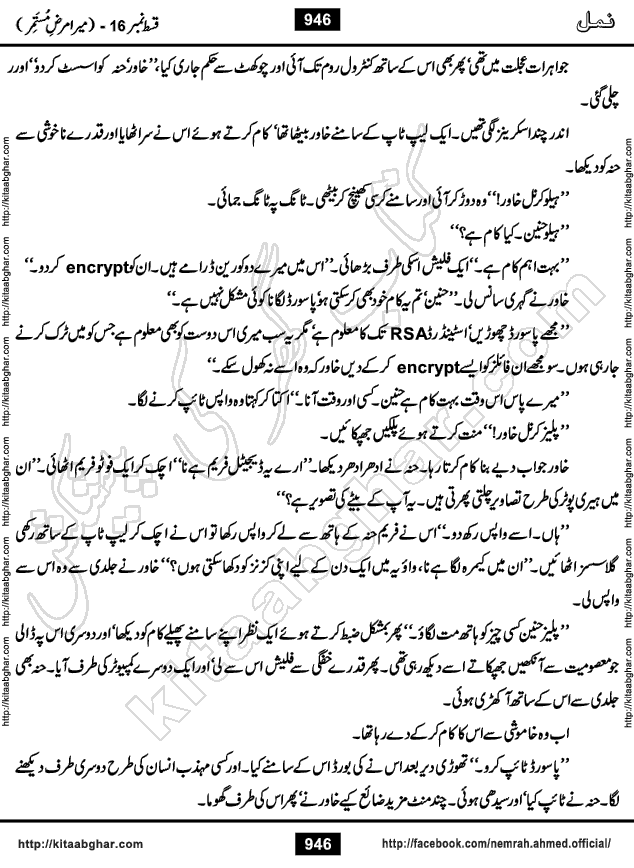 نمل
946
قسط نمبر 16 - (میرا مرضِ مُستمِر)
جواہرات عجلت میں تھی، پھر بھی اس کے ساتھ کنٹرول روم تک آئی اور چوکھٹ سے حکم جاری کیا، ’’خاور‘ حنہ کو اسسٹ کر دو‘‘ اور
چلی گئی۔
اندر چند اسکرینز لگی تھیں۔ ایک لیپ ٹاپ کے سامنے خاور بیٹھا تھا‘ کام کرتے ہوئے اس نے سر اٹھایا اور قدرے ناخوشی سے
حنہ کو دیکھا۔
’’ہیلو کرنل خاور!‘‘ وہ دوڑ کر آئی اور سامنے کرسی کھینچ کر بیٹھی۔ ٹانگ پہ ٹانگ جمائی۔
’’ہیلو حنین۔ کیا کام ہے؟‘‘
’’بہت اہم کام ہے۔‘‘ ایک فلیش اسکی طرف بڑھائی۔ ’’اس میں میرے دو کورین ڈرامے ہیں۔ ان کو encrypt کر دو۔‘‘
خاور نے گہری سانس لی۔ ’’حنین‘ تم یہ کام خود بھی کر سکتی ہو‘ پاسورڈ لگانا کوئی مشکل نہیں ہے۔‘‘
’’مجھے پاسورڈ چھوڑیں‘ اسٹینڈرڈ RSA تک کا معلوم ہے‘ مگر یہ سب میری اس دوست کو بھی معلوم ہے جس کو میں ٹرک کرنے
جا رہی ہوں۔ سو مجھے ان فائلز کو ایسے encrypt کر کے دیں خاور کہ وہ اسے نہ کھول سکے۔‘‘
’’میرے پاس اس وقت بہت کام ہے حنین۔ کسی اور وقت آنا۔‘‘ اکتا کر کہتا وہ واپس ٹائپ کرنے لگا۔
’’پلیز کرنل خاور!‘‘ منت کرتے ہوئے پلکیں جھپکائیں۔
خاور جواب دیے بنا کام کرتا رہا۔ حنہ نے ادھر ادھر دیکھا۔ ’’ارے یہ ڈیجیٹل فریم ہے نا‘‘ اچک کر ایک فوٹو فریم اٹھائی۔ ’’ان
میں ہیری پوٹر کی طرح تصاویر چلتی پھرتی ہیں۔ یہ آپ کے بیٹے کی تصویر ہے؟‘‘
’’ہاں۔ اسے واپس رکھ دو۔‘‘ اس نے فریم حنہ کے ہاتھ سے لے کر واپس رکھا تو اس نے اچک کر لیپ ٹاپ کے ساتھ رکھی
گلاسسز اٹھائیں۔ ’’ان میں کیمرہ لگا ہے نا، واؤ یہ میں ایک دن کے لیے اپنی کزنز کو دکھا سکتی ہوں؟‘‘ خاور نے جلدی سے وہ اس سے
واپس لی۔
’’پلیز حنین کسی چیز کو ہاتھ مت لگاؤ۔‘‘ پھر بمشکل ضبط کرتے ہوئے ایک نظر اپنے سامنے پھیلے کام کو دیکھا‘ اور دوسری اس پہ ڈالی
جو معصومیت سے آنکھیں جھپکاتے اسے دیکھ رہی تھی۔ پھر قدرے خفگی سے فلیش اس سے لی‘ اور ایک دوسرے کمپیوٹر کی طرف آیا۔ حنہ بھی
جلدی سے اس کے ساتھ آ کھڑی ہوئی۔
اب وہ خاموشی سے اس کا کام کر کے دے رہا تھا۔
’’پاسورڈ ٹائپ کرو۔‘‘ تھوڑی دیر بعد اس نے کی بورڈ اس کے سامنے کیا۔ اور کسی مہذب انسان کی طرح دوسری طرف دیکھنے
لگا۔ حنہ نے ٹائپ کیا‘ اور سیدھی ہوئی۔ چند منٹ مزید ضائع کیے خاور نے‘ پھر اس کی طرف گھوما۔
http://kitaabghar.com
946
http://facebook.com/nemrah.ahmed.official/